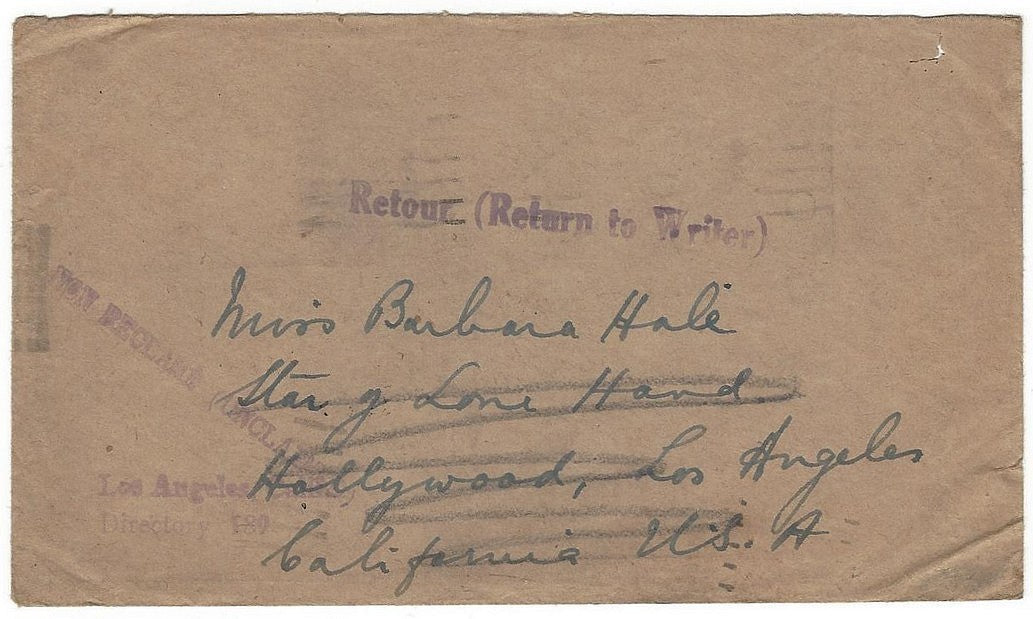 Retour (Return to Writer)
Miss Barbara Hale
Star of Lone Hand
Hollywood, Los Angeles
California U.S.A
NON RECLAMÉ (UNCLAI
Los Angeles
Directory 189